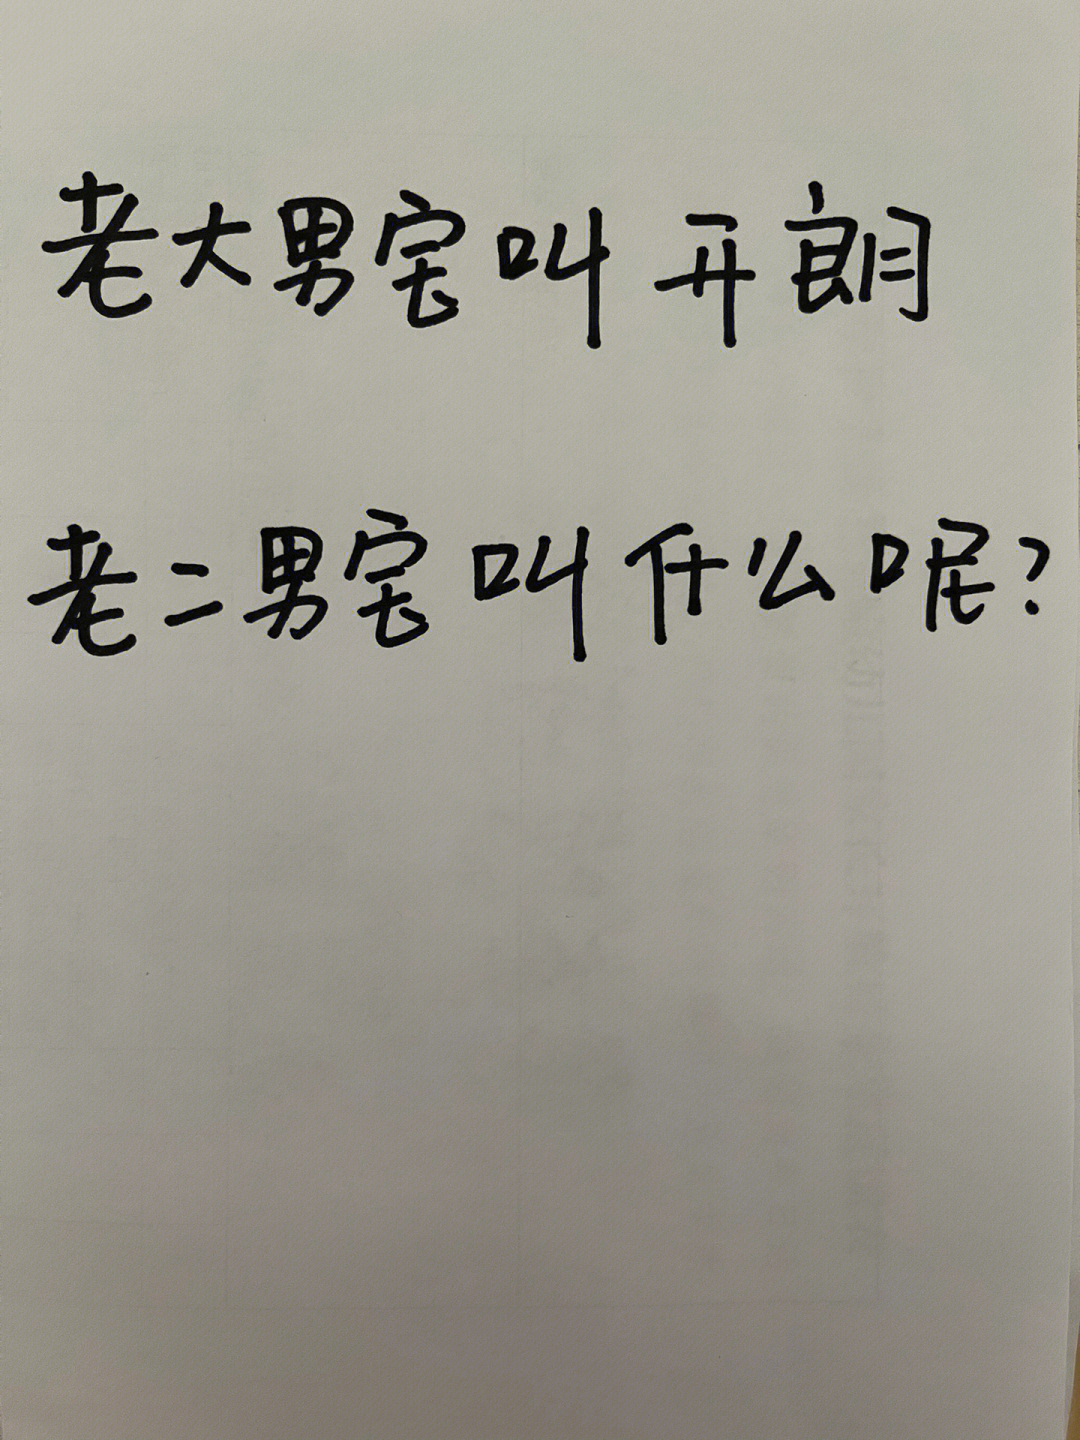 老大男宝叫开朗
老二男宝叫什么呢?